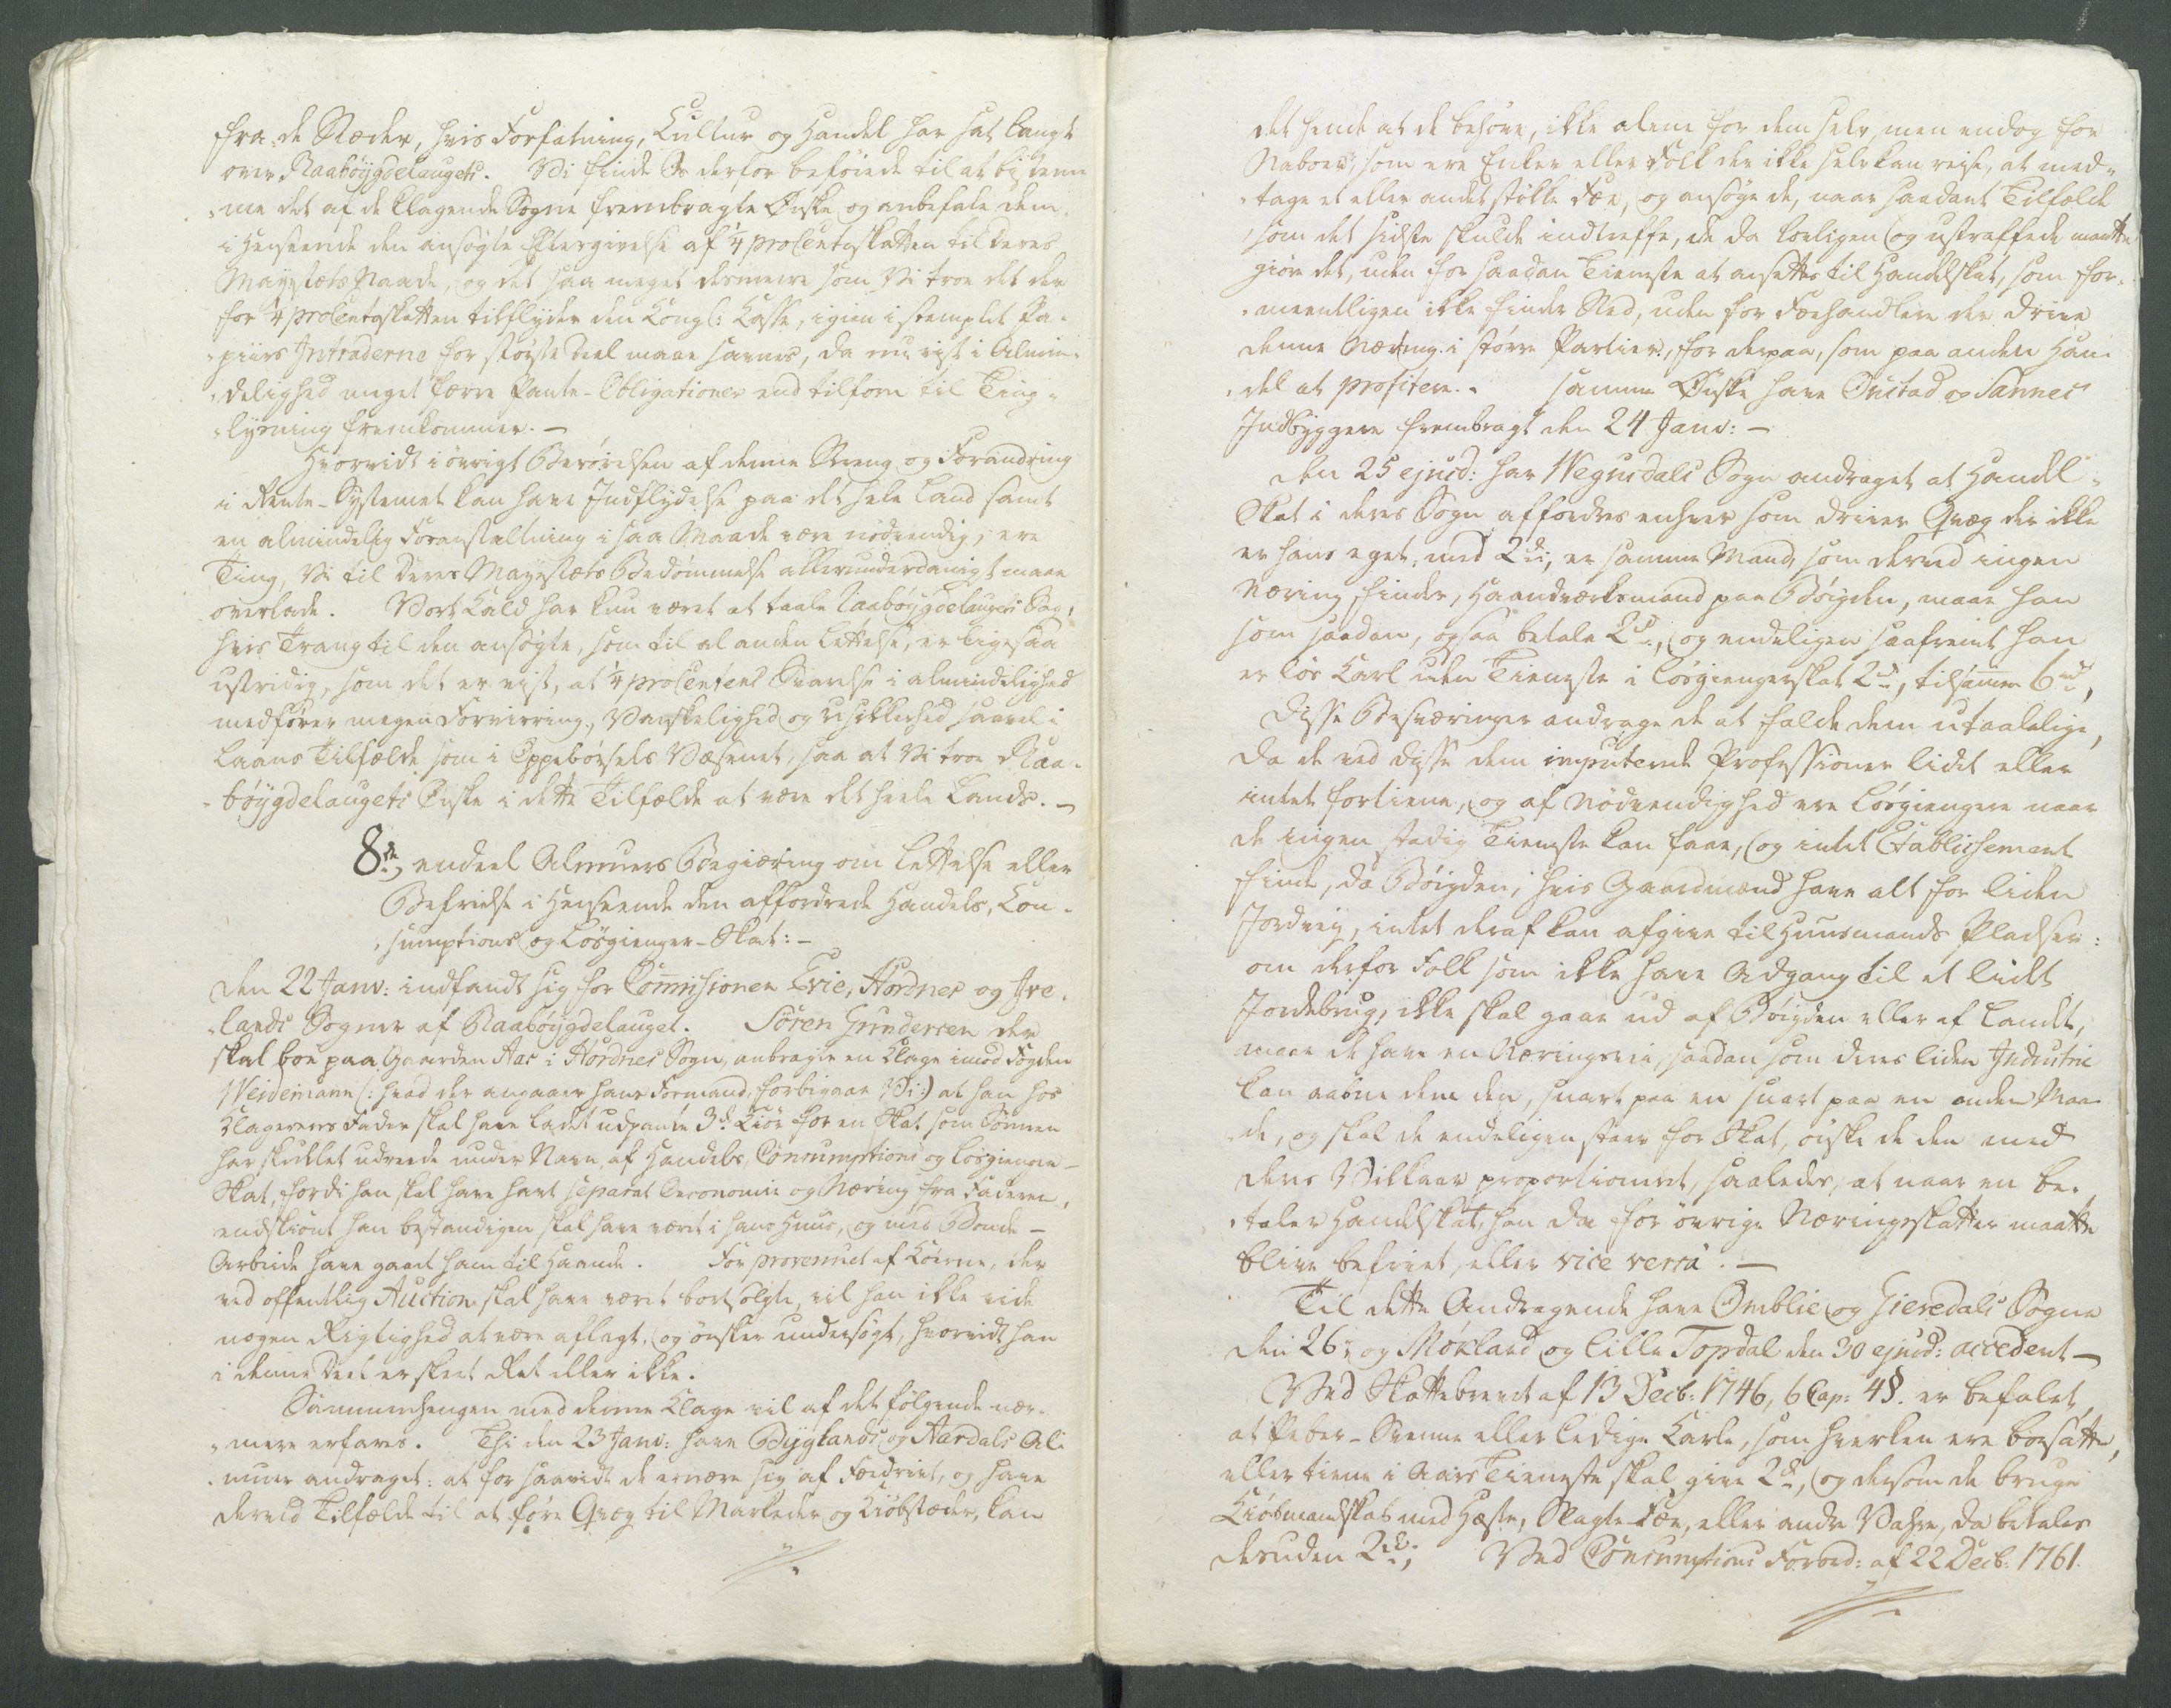 fra de Stæder, hvis Forfatning, Cultur og Handel har sat langt
over Raabøygdelauget. Vi finde Os derfor beføiede til at bistem-
me det af de klagende Sogne frembragte Ønske og anbefale dem
i Henseende den ansøgte Eftergivelse af ¼ proCentoskatten til Deres
Mayestæts Naade, og det saa meget desmere som Vi troe det der
for ¼ proCentoskatten tilflyder den Kongl: Kasse, igien i stemplet Pa-
piirs Intraderne for største Deel maae savnes, da nu vist i Almin-
delighed meget færre Pante-Obligationer end tilforn til Ting-
lysning fremkommer. -
Hvorvidt i øvrigt Berørelsen af denne Streng og Forandring
i Rente-Systemet kan have Indflydelse paa det hele Land samt
en almindelig Foranstaltning i saa Maade være nødvendig, ere
Ting, Vi til Deres Mayestæts Bedømmelse allerunderdanigst maae
overlade. Vort Kald har kun været at tale Raabøygdelaugets Sag,
hvis Trang til den ansøgte, som til al anden Lettelse, er ligesaa
ustridig, som det er vist, at ¼ proCentens Svarelse i almindelighed
medfører megen Forvirring, Vanskelighed og Usikkerhed saavel i
Laans Tilfælde som i Oppebørsels Væsenet, saa at Vi troe Raa-
bøygdelaugets Ønske i dette Tilfælde at være det heele Lands. -
8de, endeel Almuers Begiæring om Lettelse eller
Befrielse i Henseende den affordrede Handels, Con-
sumptions og Løsgienger-Skat: -
Den 22 Janv: indfandt sig for Commissionen Evie, Hordnes og Ive-
lands Sogner af Raabøygdelauget. Søren Gundersen der
skal boe paa Gaarden Aas i Hordnes Sogn, anbragte en Klage imod Fogden
Weidemann (: hvad der angaaer hans Formand, forbigaae Vi:) at han hos
Klagerens Fader skal have ladet udpante 3de Kiør for en Skat som Sønnen
har skullet udreede under Navn af Handels, Consumptions og Løsgienger-
Skat, fordi han skal have havt separat Oeconomie og Næring fra Faderen,
endskiønt han bestandigen skal have været i hans Huus, og ved Bonde-
Arbeide have gaaet ham til Haande. For provenuet af Kiørne, der
ved offentlig Auction skal have været bortsolgte, vil han ikke vide
nogen Rigtighed at være aflagt, og ønsker undersøgt, hvorvidt han
i denne Deel er skeet Ret eller ikke.
Sammenhængen med denne Klage vil af det følgende nær-
mere erfares. Thi den 23 Janv: have Byglands og Aardals Al-
muer andraget: at for saavidt de ernære sig af Fædrivt, og have
derved Tilfælde til at føre Qvæg til Markeder og Kiøbstæder, kan
det hende at de behøve, ikke alene for dem selv, men endog for
Naboer, som ere Enker eller Folk der ikke selv kan reise, at med-
tage et eller andet støkke Fæe, og ansøge de, naar saadant Tilfælde
som det sidste skulde indtreffe, de da lovligen og ustraffede maatte
giøre det, uden for saadan Tieneste at ansættes til Handelskat, som for-
meentligen ikke finder Sted, uden for Fæehandlere der drive
denne Næring i større Partier, for derpaa, som paa anden Han-
del at profitere. - samme Ønske have Onstad og Sannes
Indbyggere frembragt den 24 Janv: -
Den 25 ejusd: har Wegusdals Sogn andraget at Handel-
Skat i deres Sogn affordres enhver som driver Qvæg der ikke
er hans eget, med 2rd; er samme Mand, som derved ingen
Næring finder, Haandværksmand paa Bøigden, maae han
som saadan, ogsaa betale 2rd, og endeligen saafremt han
er løs Karl uden Tieneste i Løsgiengerskat 2rd, tilsammen 6rd,
Disse Besværinger andrage de at falde dem utaalelige,
da de ved disse dem imputerede Professioner lidet eller
intet fortiene, og af Nødvendighed ere Løsgiengere naar
de ingen stadig Tieneste kan faae, og intet Etablissement
finde, da Bøigden, hvis Gaardmænd have alt for liden
Jordvey, intet deraf kan afgive til Huusmands Pladser:
om derfor Folk som ikke have Adgang til et lidet
Jordebrug, ikke skal gaae ud af Bøigden eller af Landet,
maae de have en Næringsvei, saadan som deres liden Industrie
kan aabne dem den, snart paa en snart paa en anden Maa-
de, og skal de endeligen staae for Skat, ønske de den med
deres Vilkaar proportioneret, saaledes, at naar en be-
taler Handelskat, han da for øvrige Næringsskatter maatte
blive befriet, eller vice versa. -
Til dette Andragende have Omblie og Gieredals Sogne
den 26: og Møkland og Lille Topdal den 30 ejusd: accederet -
Ved Skattebrevet af 13 Decb: 1746, 6 Cap: 4§. er befalet,
at Peber-Svenne eller ledige Karle, som hverken ere bosatte,
eller tiene i Aars Tieneste skal give 2rd, og dersom de bruge
Kiøbmandskab med Hæste, Slagte-Fæe, eller andre Vahre, da betales
desuden 2rd; Ved Consumptions Forord: af 22 Decb: 1761.